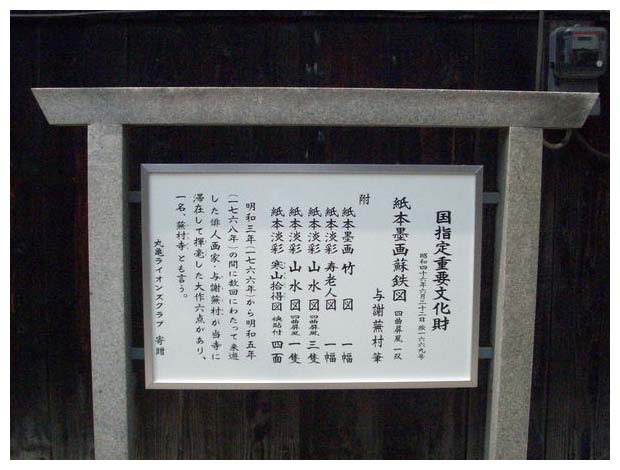 国指定重要文化財
昭和四十六年六月二十二日 絵一六六九号
紙本墨画蘇鉄図 四曲屏風 一双
与謝蕪村 筆
附
紙本墨画 竹図 一幅
紙本淡彩 寿老人図 一幅
紙本淡彩 山水図 四曲屏風 三隻
紙本淡彩 山水図 四曲屏風 一隻
紙本淡彩 寒山拾得図 襖貼付 四面
明和三年(一七六六年)から明和五年
(一七六八年)の間に数回にわたって来遊
した俳人画家、与謝蕪村が当寺に
滞在して揮毫した大作六点があり、
一名、蕪村寺とも言う。
丸亀ライオンズクラブ 寄贈